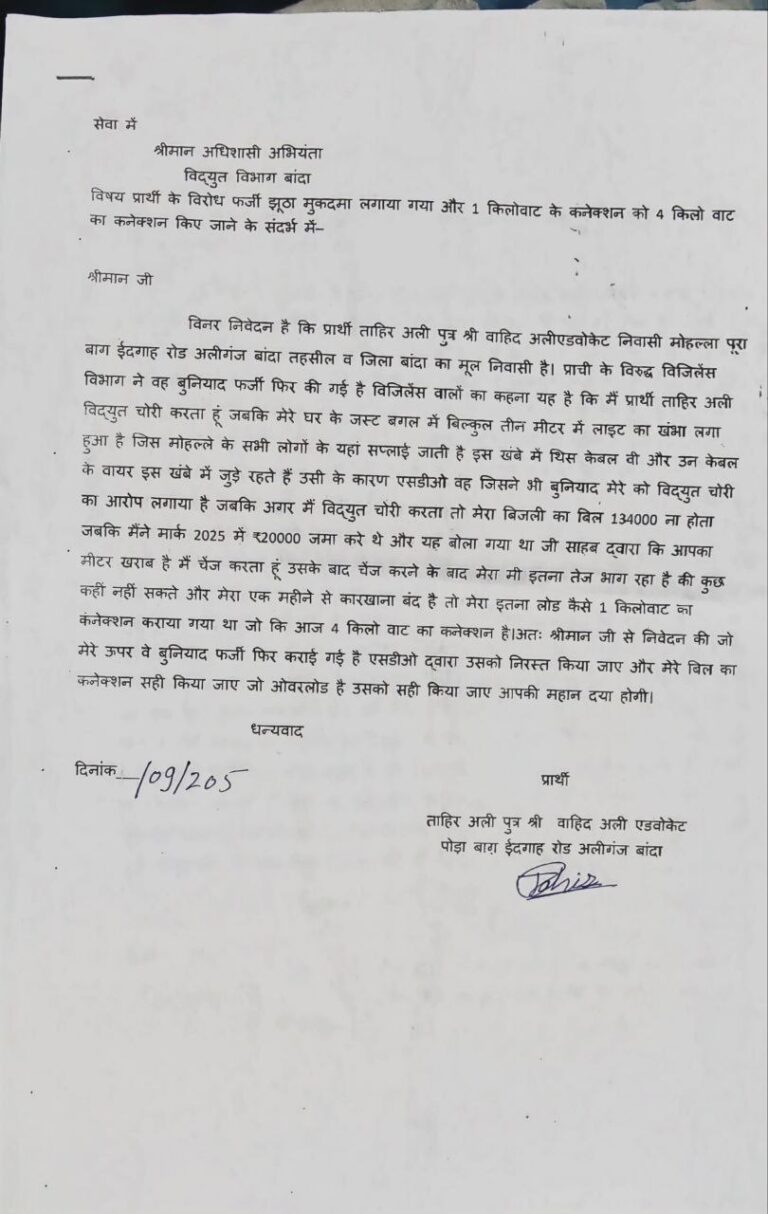 सेवा में
श्रीमान अधिशासी अभियंता
विद्युत विभाग बांदा
विषय प्रार्थी के विरोध फर्जी झूठा मुकदमा लगाया गया और 1 किलोवाट के कनेक्शन को 4 किलो वाट
का कनेक्शन किए जाने के संदर्भ में–
श्रीमान जी
विनर निवेदन है कि प्रार्थी ताहिर अली पुत्र श्री वाहिद अलीएडवोकेट निवासी मोहल्ला पूरा
बाग ईदगाह रोड अलीगंज बांदा तहसील व जिला बांदा का मूल निवासी है। प्राची के विरुद्ध विजिलेंस
विभाग ने वह बुनियाद फर्जी फिर की गई है विजिलेंस वालों का कहना यह है कि मैं प्रार्थी ताहिर अली
विद्युत चोरी करता हूं जबकि मेरे घर के जस्ट बगल में बिल्कुल तीन मीटर में लाइट का खंभा लगा
हुआ है जिस मोहल्ले के सभी लोगों के यहां सप्लाई जाती है इस खंबे में थिस केबल वी और उन केबल
के वायर इस खंबे में जुड़े रहते हैं उसी के कारण एसडीओ वह जिसने भी बुनियाद मेरे को विद्युत चोरी
का आरोप लगाया है जबकि अगर मैं विद्युत चोरी करता तो मेरा बिजली का बिल 134000 ना होता
जबकि मैंने मार्क 2025 में ₹20000 जमा करे थे और यह बोला गया था जी साहब द्वारा कि आपका
मीटर खराब है मैं चेंज करता हूं उसके बाद चेंज करने के बाद मेरा मी इतना तेज भाग रहा है की कुछ
कहीं नहीं सकते और मेरा एक महीने से कारखाना बंद है तो मेरा इतना लोड कैसे 1 किलोवाट का
कंनेक्शन कराया गया था जो कि आज 4 किलो वाट का कनेक्शन है।अतः श्रीमान जी से निवेदन की जो
मेरे ऊपर वे बुनियाद फर्जी फिर कराई गई है एसडीओ द्वारा उसको निरस्त किया जाए और मेरे बिल का
कनेक्शन सही किया जाए जो ओवरलोड है उसको सही किया जाए आपकी महान दया होगी।
धन्यवाद
दिनांक --/09/205
प्रार्थी
ताहिर अली पुत्र श्री वाहिद अली एडवोकेट
पोड़ा बाग़ ईदगाह रोड अलीगंज बांदा